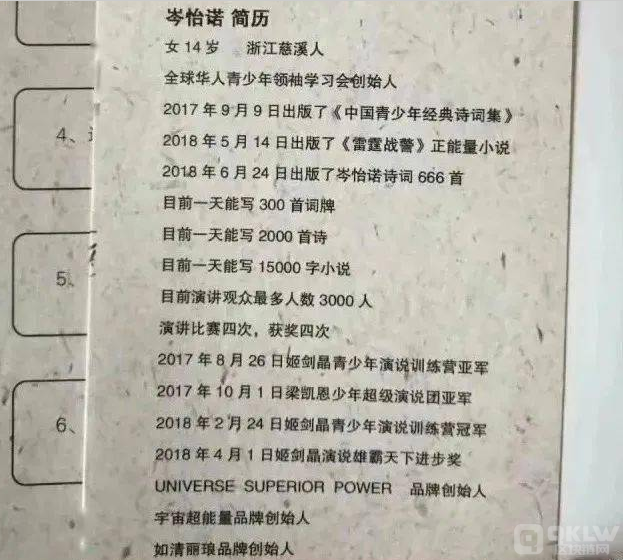 岑怡诺 简历
女 14 岁 浙江慈溪人
全球华人青少年领袖学习会创始人
2017 年 9 月 9 日出版了《中国青少年经典诗词集》
2018 年 5 月 14 日出版了《雷霆战警》正能量小说
2018 年 6 月 24 日出版了岑怡诺诗词 666 首
目前一天能写 300 首词牌
目前一天能写 2000 首诗
目前一天能写 15000 字小说
目前演讲观众最多人数 3000 人
演讲比赛四次，获奖四次
2017 年 8 月 26 日姬剑晶青少年演说训练营亚军
2017 年 10 月 1 日梁凯恩少年超级演说团亚军
2018 年 2 月 24 日姬剑晶青少年演说训练营冠军
2018 年 4 月 1 日姬剑晶演说雄霸天下进步奖
UNIVERSE SUPERIOR POWER 品牌创始人
宇宙超能量品牌创始人
如清丽琅品牌创始人
4、
5、
6、
QKLW